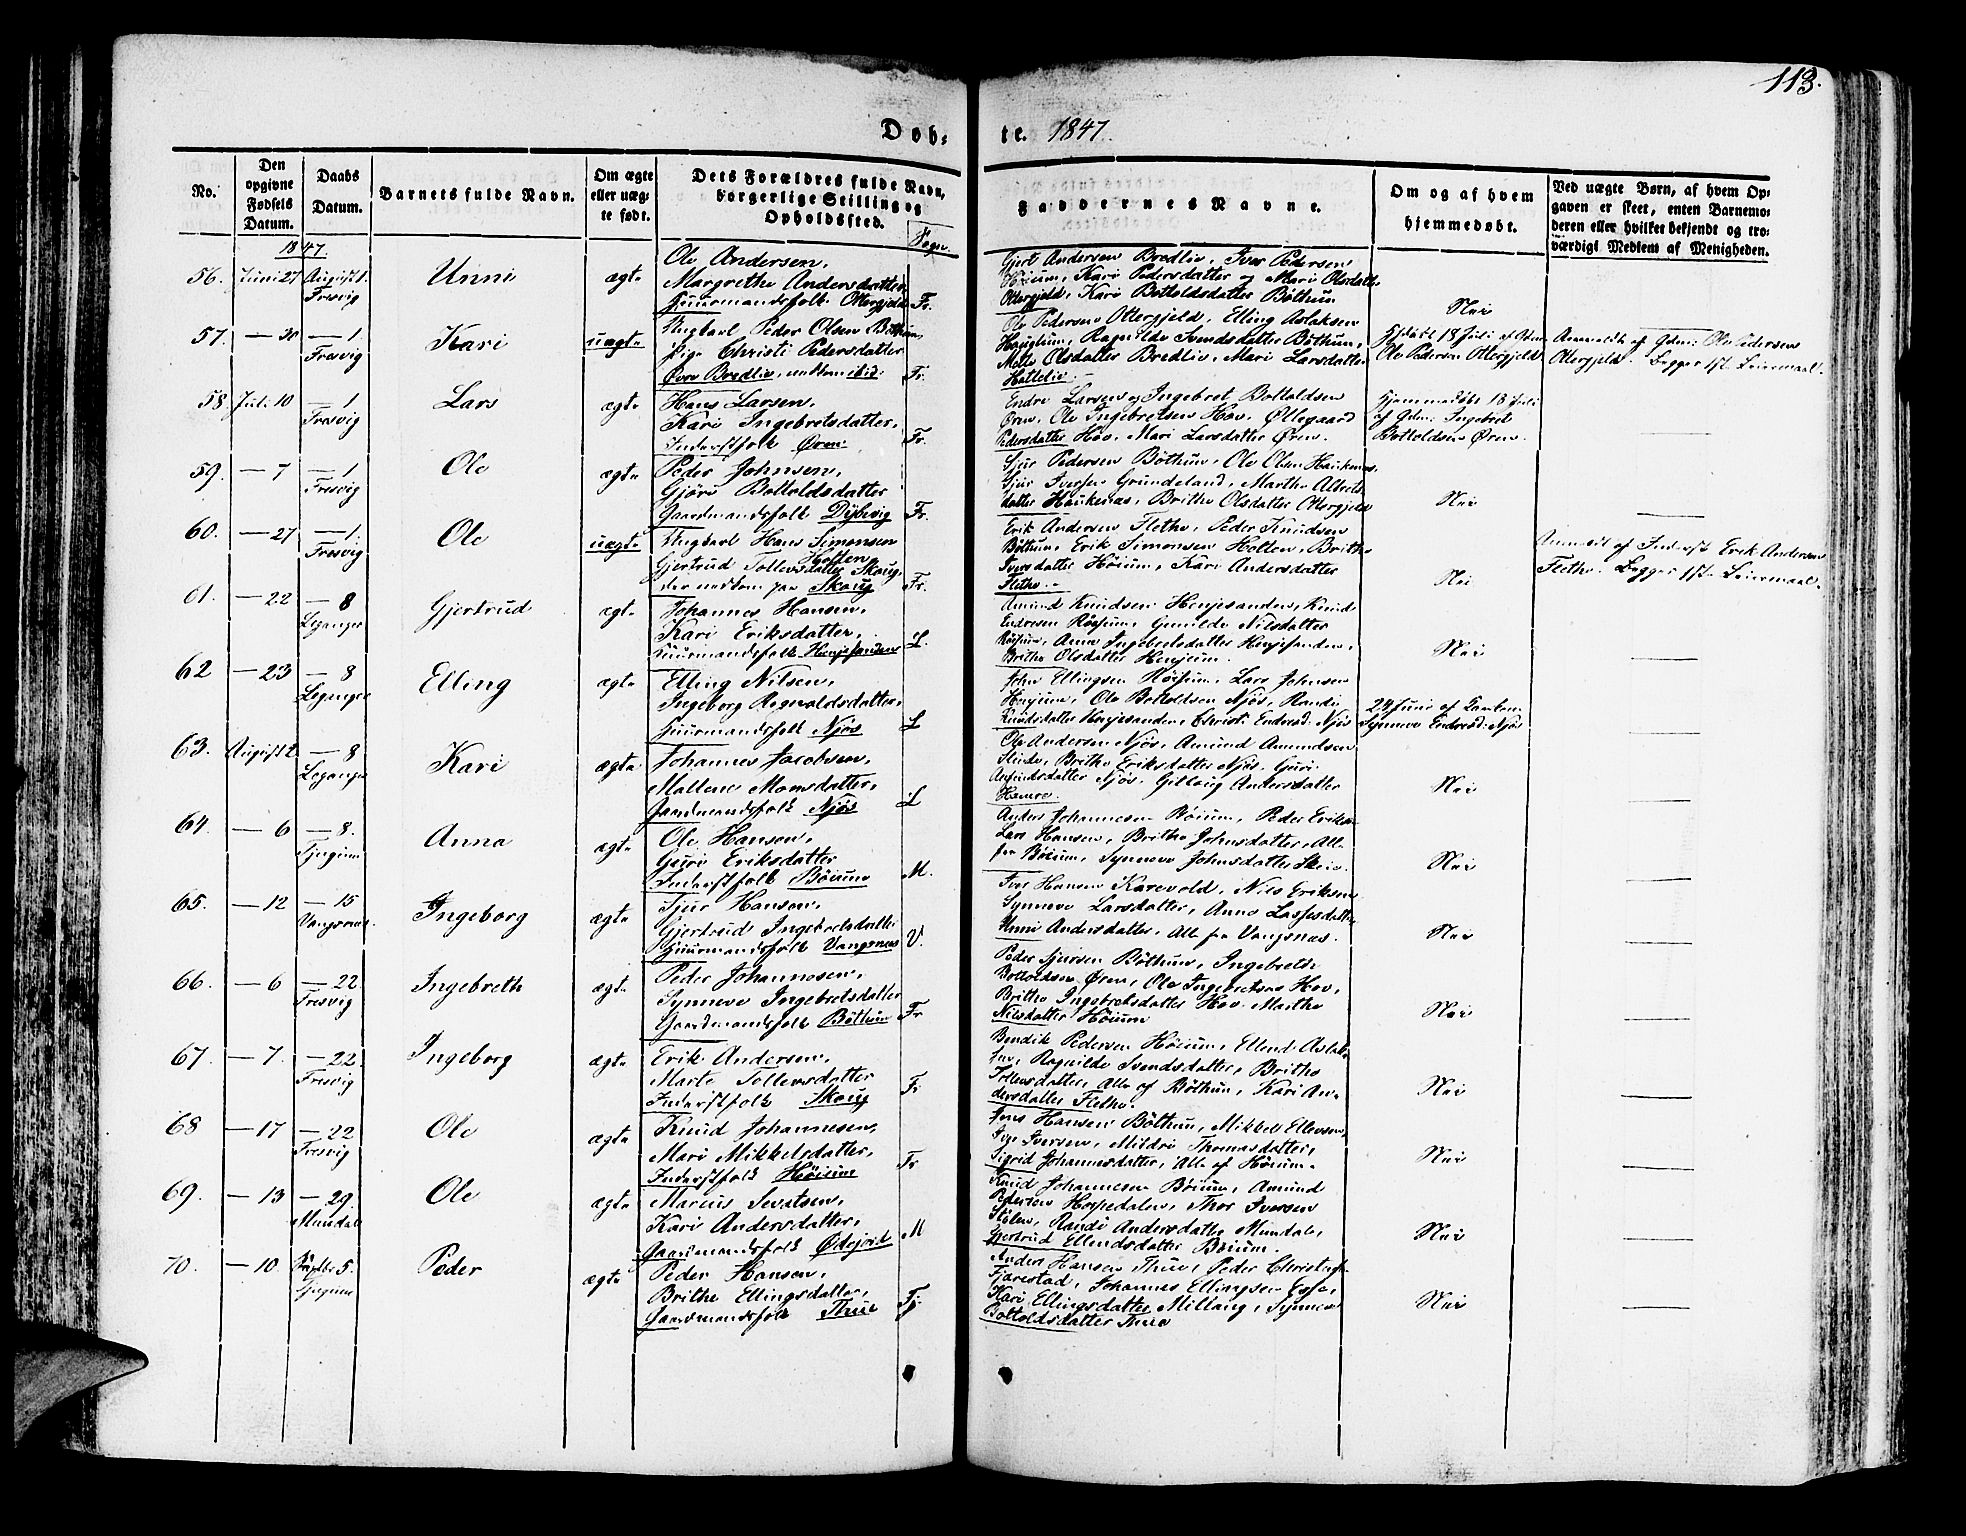 113.
Døb-
te. 1847.
No.
Den opgivne Fødsels Datum.
Daabs Datum.
Barnets fulde Navn.
Om ægte eller uæg- te født.
Dets Forældres fulde Navn, borgerlige Stilling og Opholdssted.
Sogn.
Faddernes Navne.
Om og af hvem hjemmedøbt.
Ved uægte Børn, af hvem Op- gaven er skeet, enten Barnemo- deren eller hvilket bekjendt og tro- værdigt Medlem af Menigheden.
1847.
56. Juni 27 August 1. Fresvig
Unni
ægte
Ole Andersen,
Margrethe Andersdatter,
Huusmandsfolk Ottergjeld Fr.
Gjert Andersen Bredlie, Iver Pedersen
Høium, Kari Pedersdatter og Mari Olsdatter
Ottergjeld, Kari Botholdsdatter Bøthun
Nei
57. — 30 — 1 Fresvig
Kari
uægte
Ungkarl Peder Olsen Bøthun,
Pige Christi Pedersdatter
Øvre Bredlie, nedkom ibid: Fr.
Ole Pedersen Ottergjeld, Elling Aslaksen
Ragnilde Svendsdatter Bøthun,
Mette Olsdatter Bredlie, Mari Larsdatter
Hattelie.
Hjdøbt 18 Juli af Gdm:
Ole Pedersen Ottergjeld
Anmeldt af Gdm: Ole Pedersen
Ottergjeld. Begges 1ste Leiermaal.
58. Juli 10 — 1 Fresvig
Lars
ægte
Hans Larsen,
Kari Ingebretsdatter,
Inderstfolk Øren. Fr.
Endre Larsen og Ingebret Botholdsen
Øren, Ole Ingebretsen Hov, Øllegaard
Pedersdatter Hov, Mari Larsdatter Øren.
Hjemmedøbt 18 Juli
af Gdm: Ingebret
Botholdsen Øren.
59. — 7 — 1 Fresvig
Ole
ægte
Peder Johnsen,
Gjøri Botholdsdatter
Gaardmandsfolk Dybevig Fr.
Sjur Pedersen Bøthun, Ole Olsen Haukenæs,
Sjur Iversen Grundeland, Marthe Albrets-
datter Haukenæs, Brithe Olsdatter Ottergjeld
Nei
60. — 27 — 1. Fresvig
Ole
uægte
Ungkarl Hans Simonsen
Holten,
Gjertrud Tollevsdatter Skoug,
der nedkom paa Skoug Fr.
Erik Andersen Flethe, Peder Knudsen
Bøthun, Erik Simonsen Holten, Brithe
Iversdatter Høium, Kari Andersdatter
Flethe.
Nei
Anmeldt af Inderst Erik Andersen
Flethe. Begges 1ste Leiermaal.
61. — 22 — 8 Leganger
Gjertrud
ægte
Johannes Hansen,
Kari Eriksdatter,
Huusmandsfolk Henjesanden L.
Amund Knudsen Henjesanden, Knud
Endresen Røisum, Gunilde Nilsdatter
Røisum, Anna Ingebretsdatter Henjesanden,
Brithe Olsdatter Henjum.
Nei
62 — 23 — 8 Leganger
Elling
ægte
Elling Nilsen,
Ingeborg Ragnvaldsdatter,
Huusmandsfolk Njøs L
John Ellingsen Røisum, Lars Johnsen
Henjum, Ole Botholdsen Njøs, Randi
Knudsdatter Henjesanden, Christi Endresd: Njøs
Synneve Endresd: Njøs
63. August 2 — 8 Leganger
Kari
ægte
Johannes Jacobsen,
Maltene Monsdatter,
Gaardmandsfolk Njøs L
Ole Andersen Njøs, Amund Amundsen
Slinde, Brithe Eriksdatter Njøs, Guri
Amundsdatter Njøs. Gitlaug Andersdatter
Hamre.
Nei
64. — 6 — 8.
Anna
ægte
Ole Hansen,
Guri Eriksdatter
Inderstfolk Bøium M.
Anders Johannesen Bøium, Peder Eriksen
Lars Hansen, Brithe Johnsdatter, Alle
fra Bøium, Synneve Johnsdatter Skeie.
Nei
65. — 12 — 15 Vangsnæs
Ingeborg
ægte
Sjur Hansen,
Gjertrud Ingebretsdatter
Huusmandsfolk Vangsnæs V.
Iver Hansen Karevold, Nils Eriksen
Synneve Larsdatter, Anne Lassesdatter
Unni Andersdatter, Alle fra Vangsnæs.
Nei
66. — 6 — 22 Fresvig
Ingebreth
ægte
Peder Johannesen,
Synneve Ingebretsdatter
Gaardmandsfolk Bøthun Fr
Peder Sjursen Bøthun, Ingebreth
Botholdsen Øren, Ole Ingebretsen Hov,
Brithe Ingebretsdatter Hov. Marthe
Nilsdatter Høium
Nei
67. — 7. — 22. Fresvig
Ingeborg
ægte
Erik Andersen,
Marte Tollevsdatter
Inderstfolk Skoug Fr
Bendik Pedersen Høium, Ellend Aslak-
sen, Ragnilde Svendsdatter, Brithe
Tollevsdatter, Alle af Bøthun, Kari An-
dersdatter Flethe.
Nei
68 — 17 — 22 Fresvig
Ole
ægte
Knud Johannesen,
Mari Mikkelsdatter,
Inderstfolk Høium Fr
Jens Hansen Bøthun, Mikkel Ellevsen,
Iversen, Mildri Thomasdatter,
Sigrid Johannesdatter, Alle af Høium.
Nei
69. — 13 — 29. Mundal
Ole
ægte
Marcus Sevatsen,
Kari Andersdatter,
Gaardmandsfolk Ødejord M
Knud Johannesen Bøium, Amund
Pedersen Horpedalen, Thor Iversen
Støllen, Randi Andersdatter Mundal,
Gjertrud Ellendsdatter Bøium.
Nei
70. — 10 Septbr 5.
Peder
ægte
Peder Hansen,
Brithe Ellingsdatter,
Gaardmandsfolk Thue Fj.
Anders Hansen Thue, Peder Christens:
Fjærestad, Johannes Ellingsen Esse,
Kari Ellingsdatter Millang, Synneve
Botholdsdatter Thue
Nei